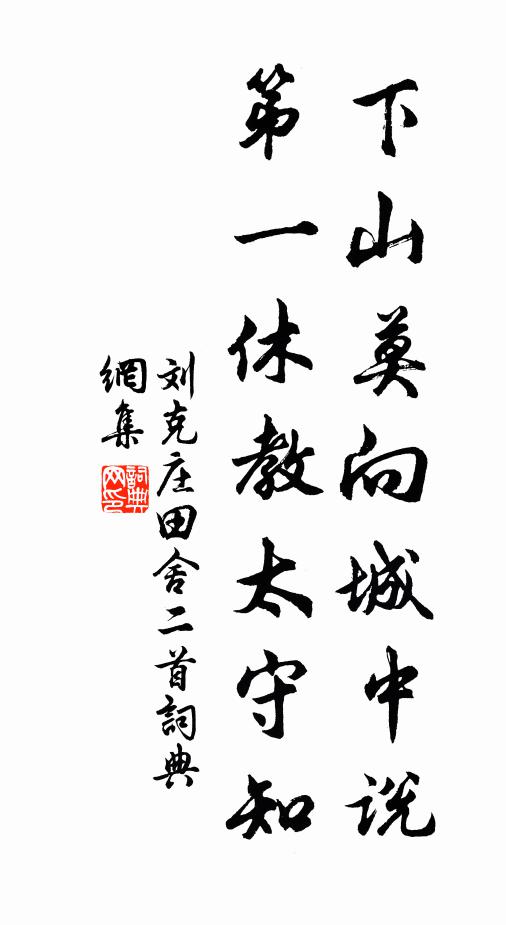 下山莫向城中说
第一休教太守知
刘克庄田舍二首詞典
網集
詞典
网印